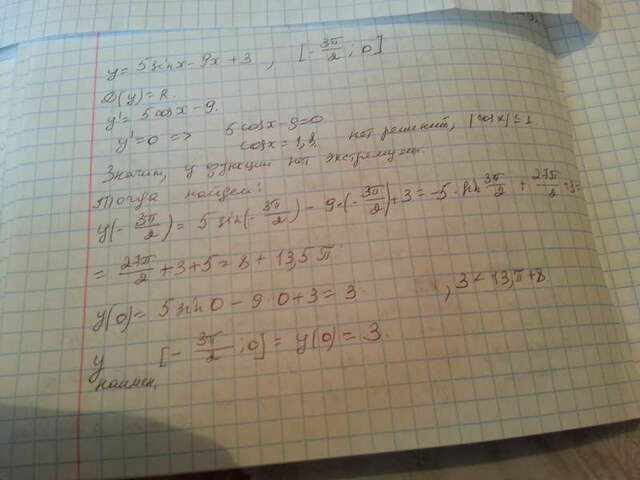 y = 5sinx - 9x + 3 , [-3π/2 ; 0]
D(y) = R.
y' = 5cosx - 9.
y' = 0 => 5cosx - 9 = 0
cosx = 1,8 нет решений, |cosx| ≤ 1
Значит, у функции нет экстремума.
Тогда найдем:
y(-3π/2) = 5 sin(-3π/2) - 9·(-3π/2) + 3 = -5·sin 3π/2 + 27π/2 + 3 =
= 27π/2 + 3 + 5 = 8 + 13,5π
y(0) = 5sin0 - 9·0 + 3 = 3. , 3 < 13,π + 8
y [-3π/2 ; 0] = y(0) = 3.
наимен.